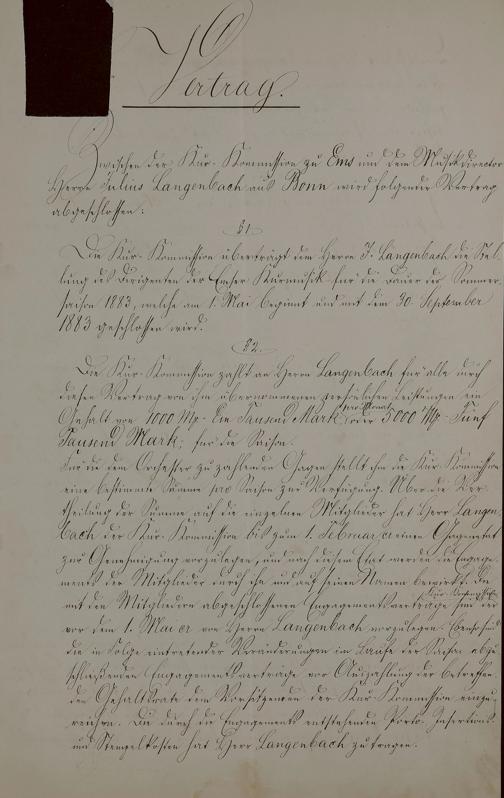 Vertrag.
Zwischen der Kur-Kommission zu Ems und dem Musikdirector
Herrn Julius Langenbach aus Bonn wird folgender Vertrag
abgeschlossen:
§1.
Die Kur-Kommission überträgt dem Herrn J. Langenbach die Stel-
lung des Dirigenten der Emser Kurmusik für die Dauer der Sommer-
saison 1883, welche am 1. Mai beginnt und mit dem 30. September
1883 geschlossen wird.
§2.
Die Kur-Kommission zahlt an Herrn Langenbach für alle durch
diesen Vertrag von ihm übernommenen persönlichen Leistungen ein
Gehalt von 1000 Mk - Ein Tausend Mark pro Monat oder 5000 Mk - Fünf
Tausend Mark; für die Saison.
Für die dem Orchester zu zahlenden Gagen stellt ihm die Kur-Kommission
eine bestimmte Summe pro Saison zur Verfügung. Über die Ver-
theilung der Summe auf die einzelnen Mitglieder hat Herr Langen-
bach der Kur-Kommission bis zum 1. Februar er einen Gagenetat
zur Genehmigung vorzulegen, und nach diesem Etat werden die Engage-
ments der Mitglieder durch ihn und auf seinen Namen bewirkt. Die
mit den Mitgliedern abgeschlossenen Engagementsverträge sind der
vor dem 1. Mai er von Herrn Langenbach vorzulegen. Ebenso sind
die in Folge eintretender Veränderungen im Laufe der Saison abzu-
schließenden Engagementsverträge vor Auszahlung der betreffen-
den Gehaltsrate dem Vorsitzenden der Kur-Kommission einzu-
reichen. Die durch die Engagements entstehenden Porto- Insertions-
und Stempelkosten hat Herr Langenbach zu tragen.